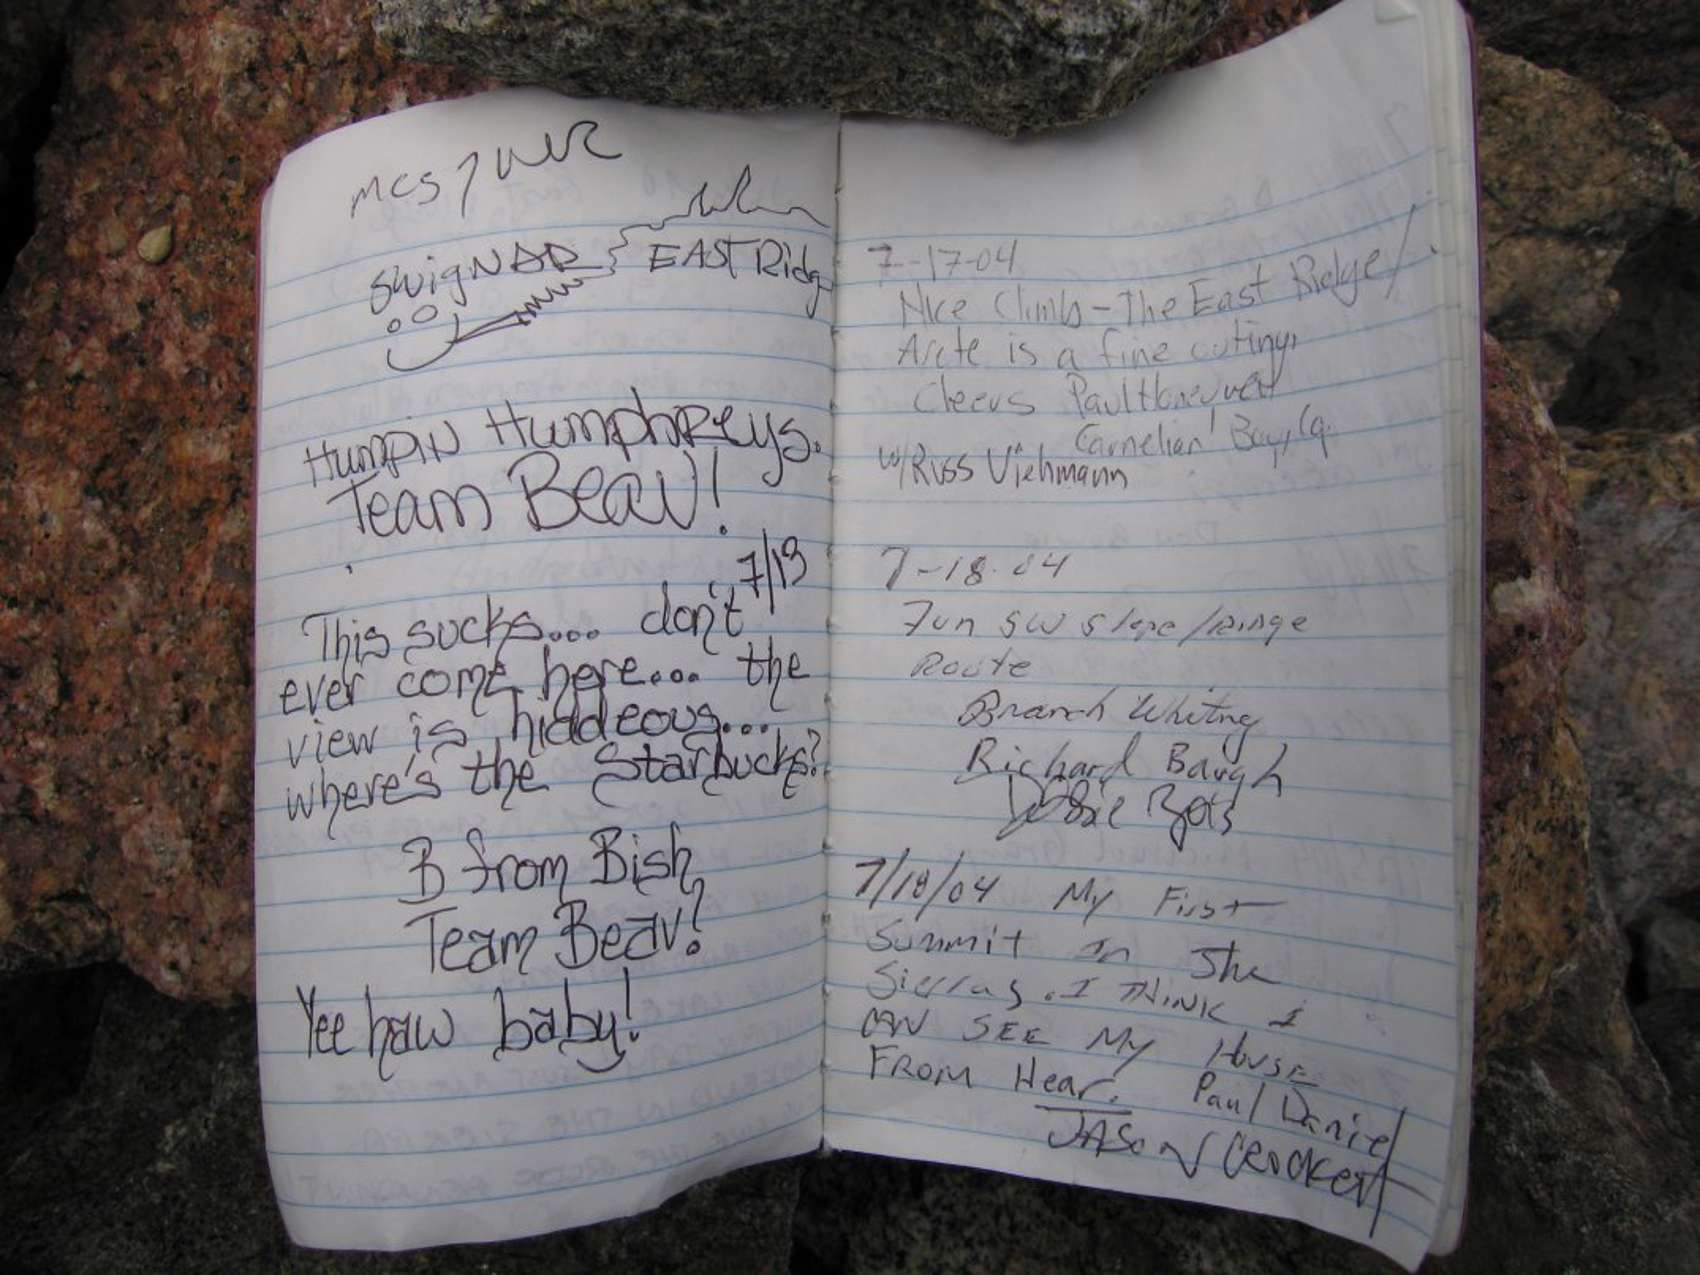 EAST Ridg
Humpin Humphreys.
Team Beav!
7/13
This sucks... don't
ever come here... the
view is hiddeous...
where's the Starbucks?
B from Bish
Team Beav?
Yee haw baby!
7-17-04
Nice Climb - The East Ridge/
Arete is a fine outing,
Cheers Paul
Carnelian Bay, Ca.
w/Russ Viehmann
7-18-04
Fun SW Slope/
Route
Branch Whitney
Richard Baugh
7/18/04 My First
Summit In The
Sierras. I THINK I
CAN SEE My HOUSE
FROM Hear. Paul Daniel
JASON CROCKETT